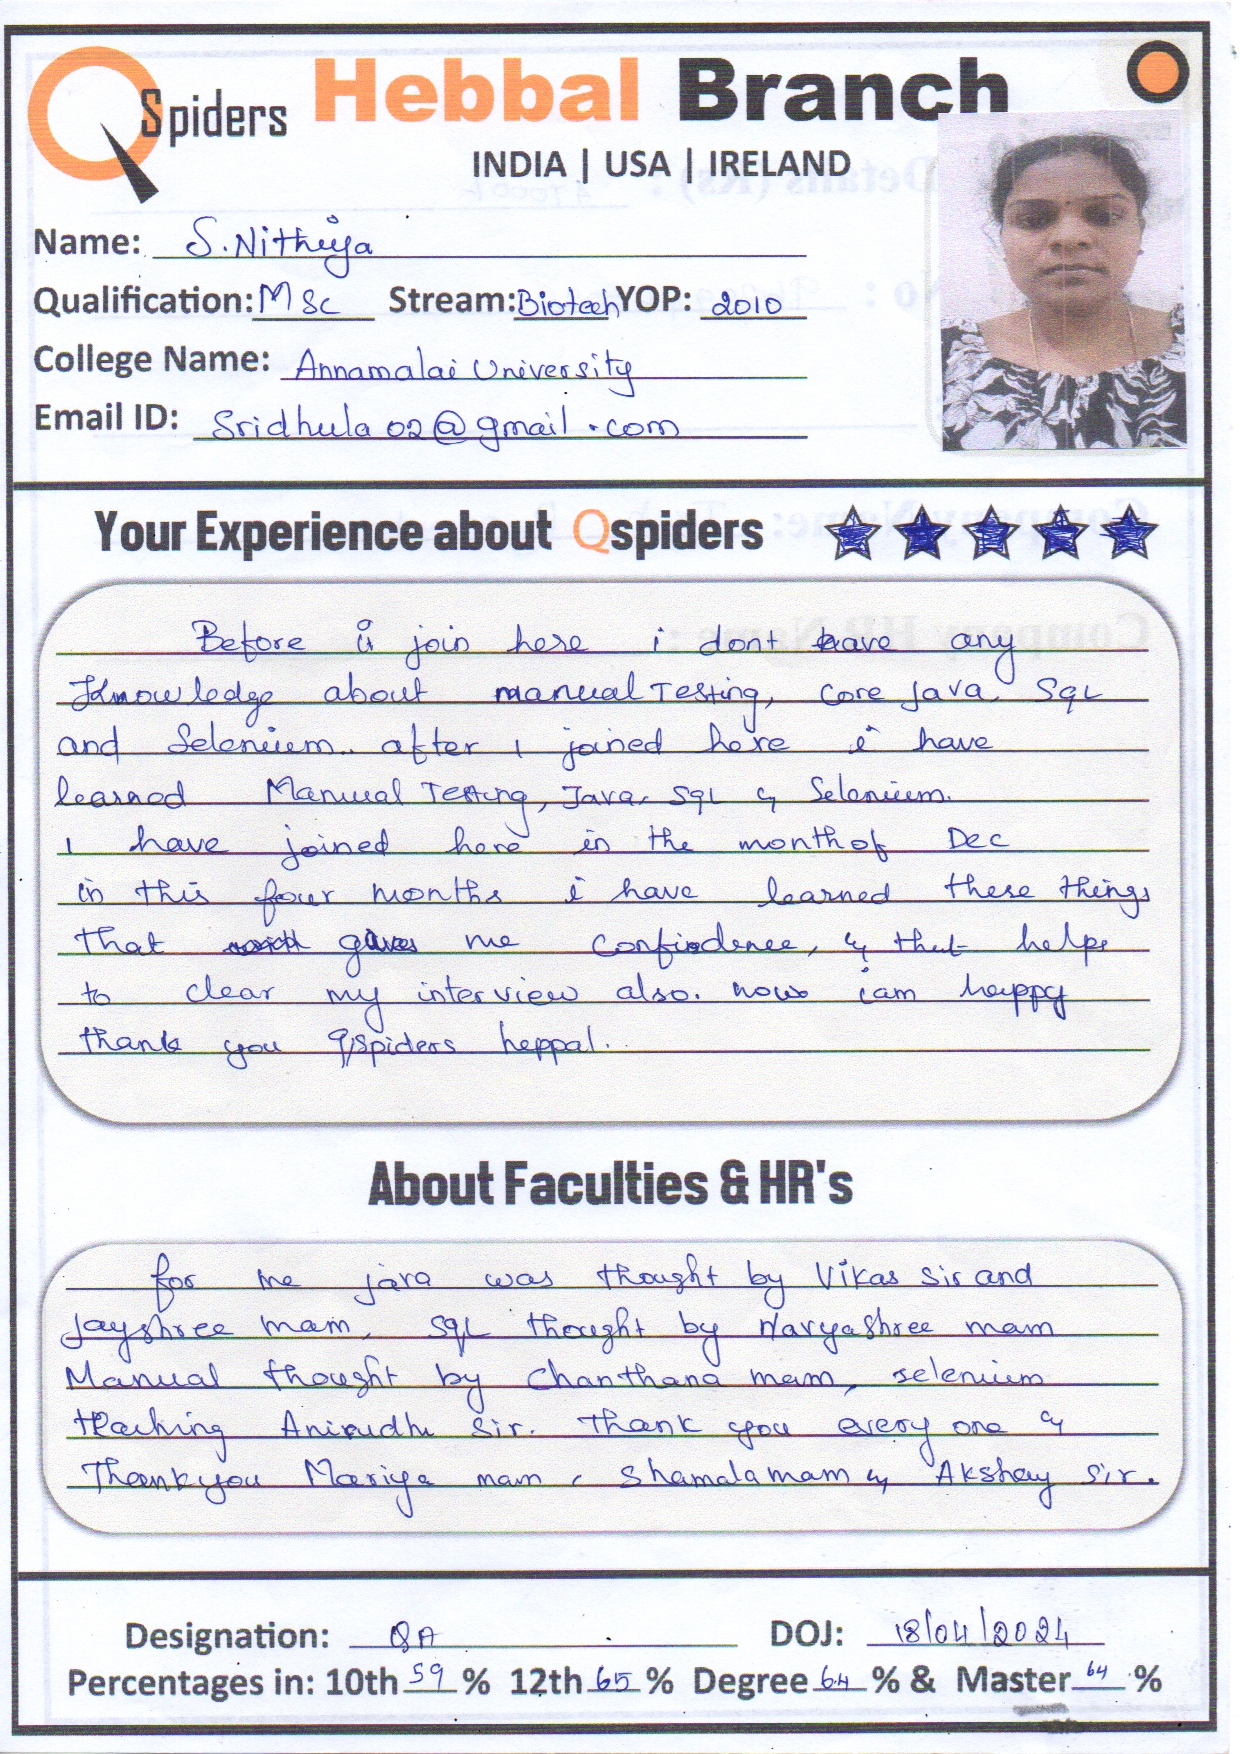 QSpiders Hebbal Branch
INDIA | USA | IRELAND
Name: S. Nithiya
Qualification: MSc Stream: Biotech YOP: 2010
College Name: Annamalai University
Email ID: Sridhula02@gmail.com
Your Experience about Qspiders
Before i join here i dont have any
Knowledge about manual Testing, Core Java, SQL
and Selenium.. after I joined here i have
learned Manual Testing, Java, SQL & Selenium.
I have joined here in the month of Dec
in this four months i have learned these things
that gives me confidence, & that helps
to clear my interview also. now iam happy
thank you Q/spiders heppal.
About Faculties & HR's
for me java was thought by Vikas Sir and
Jayshree mam, SQL thought by NavyaShree mam
Manual thought by Chanthana mam, selenium
teaching Anirudhu Sir. Thank you every one &
Thankyou Mariya mam, Shamala mam & Akshay Sir.
Designation: QA DOJ: 18/04/2024
Percentages in: 10th 59 % 12th 65 % Degree 64 % & Master 64 %